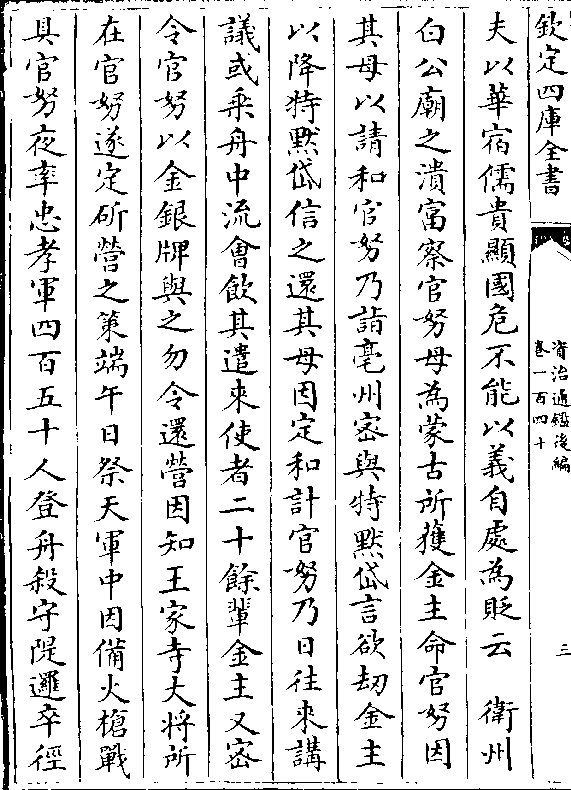 欽定四庫全書
資治通鑑後編
卷一百四十
三
夫以華宿儒貴顯國危不能以義自處為貶云　衛州
白公廟之潰富察官努母為蒙古所獲金主命官努因
其母以請和官努乃詣亳州密與特默岱言欲刼金主
以降特默岱信之還其母因定和計官努乃日往來講
議或乘舟中流會飲其遣來使者二十餘輩金主又密
令官努以金銀牌與之勿令還營因知王家寺大將所
在官努遂定斫營之策端午日祭天軍中因備火槍戰
具官努夜率忠孝軍四百五十人登舟殺守隄邏卒徑